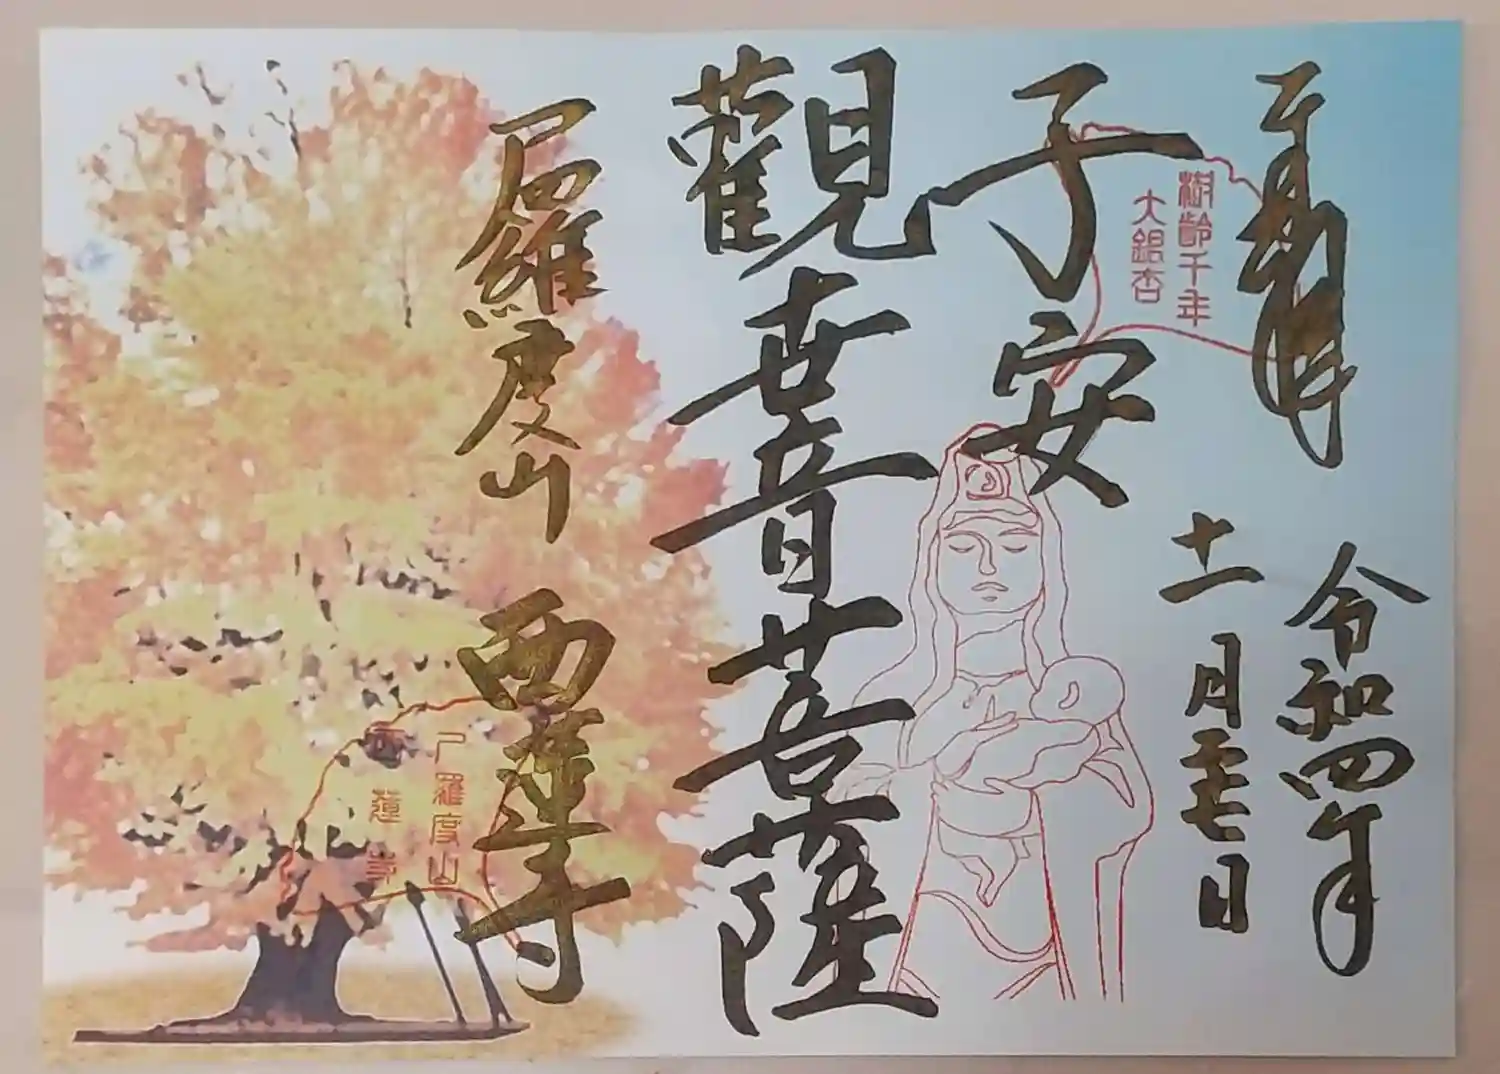 令和四年
十一月二十七日
樹齢千年
大銀杏
子安
觀世音菩薩
尸羅度山 西蓮寺
尸羅度山
西蓮寺